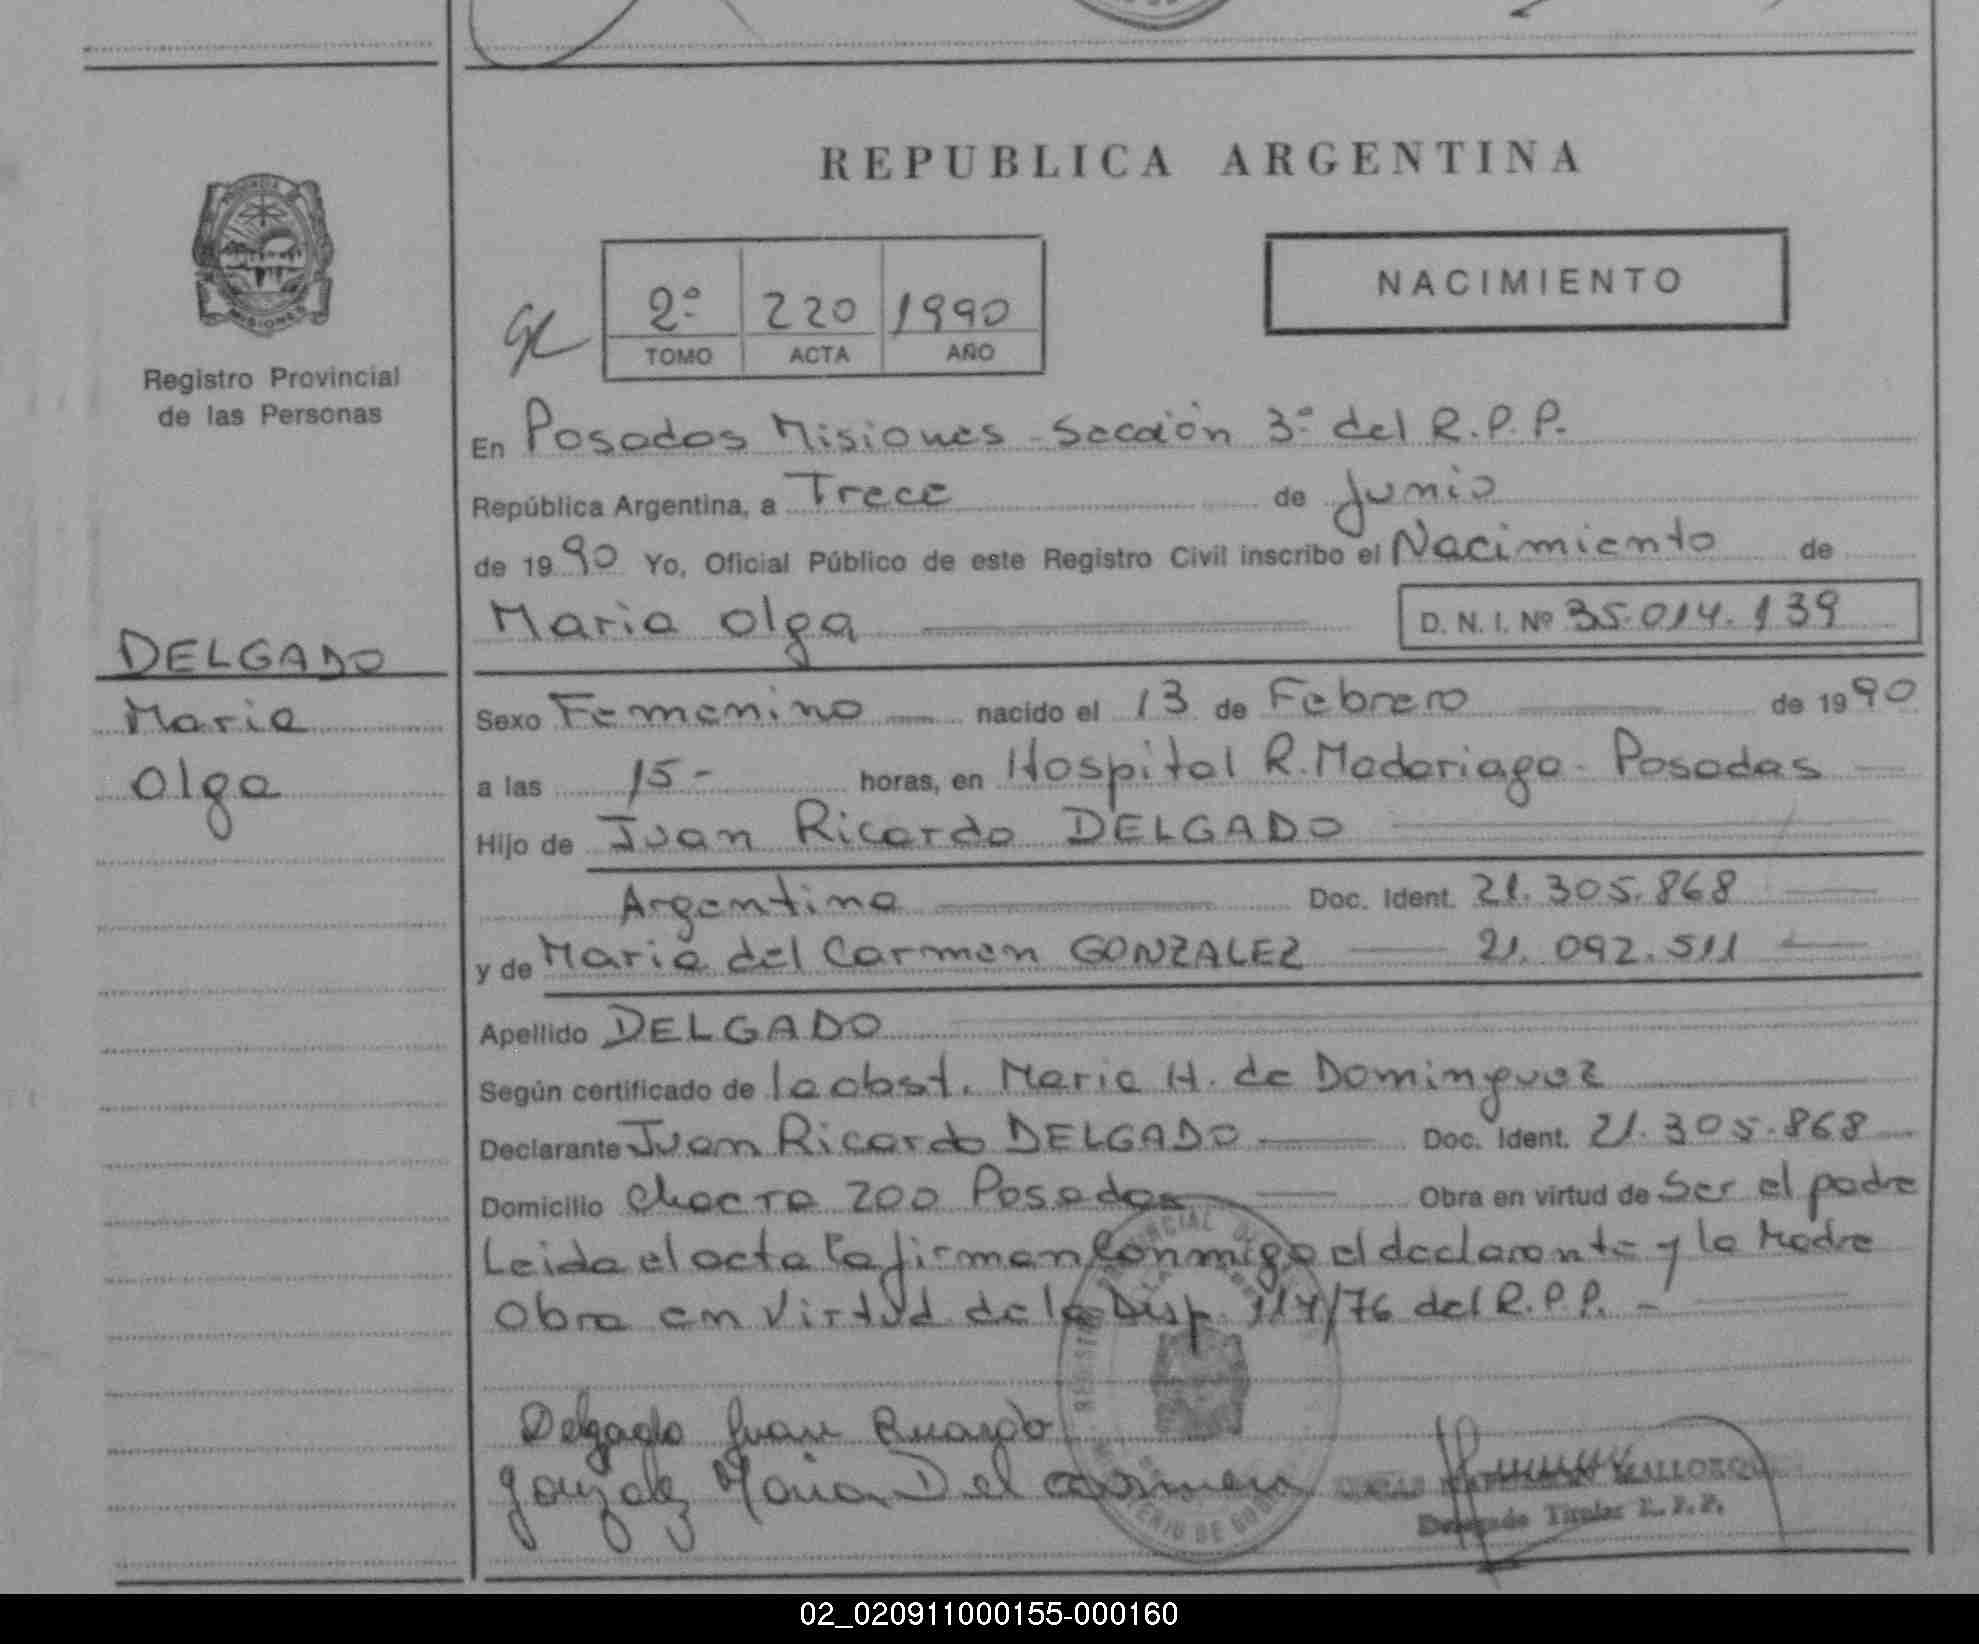 REPUBLICA ARGENTINA
NACIMIENTO
2º 220 1990
TOMO ACTA AÑO
MISIONES
Registro Provincial
de las Personas
En Posadas Misiones - Sección 3º del R.P.P.
República Argentina, a Trece de Junio
de 1990 Yo, Oficial Público de este Registro Civil inscribo el Nacimiento de
Maria Olga D. N. I. Nº 35.014.139
DELGADO
Maria
Olga
Sexo Femenino nacido el 13 de Febrero de 1990
a las 15- horas, en Hospital R. Madariaga - Posadas
Hijo de Juan Ricardo DELGADO
Argentina Doc. Ident. 21.305.868
y de Maria del Carmen GONZALEZ 21.092.511
Apellido DELGADO
Según certificado de la obst. Maria H. de Dominguez
Declarante Juan Ricardo DELGADO Doc. Ident. 21.305.868
Domicilio Chacra 200 Posadas Obra en virtud de Ser el padre
Leida el acta la firman conmigo el declarante y la Madre
Obra en virtud de la Disp. 117/76 del R.P.P. -
Delgado Juan Ricardo
Gonzalez Maria Del Carmen
MALLORQU
Delegado Titular R.P.P.
MINISTERIO DE GOB
02_020911000155-000160